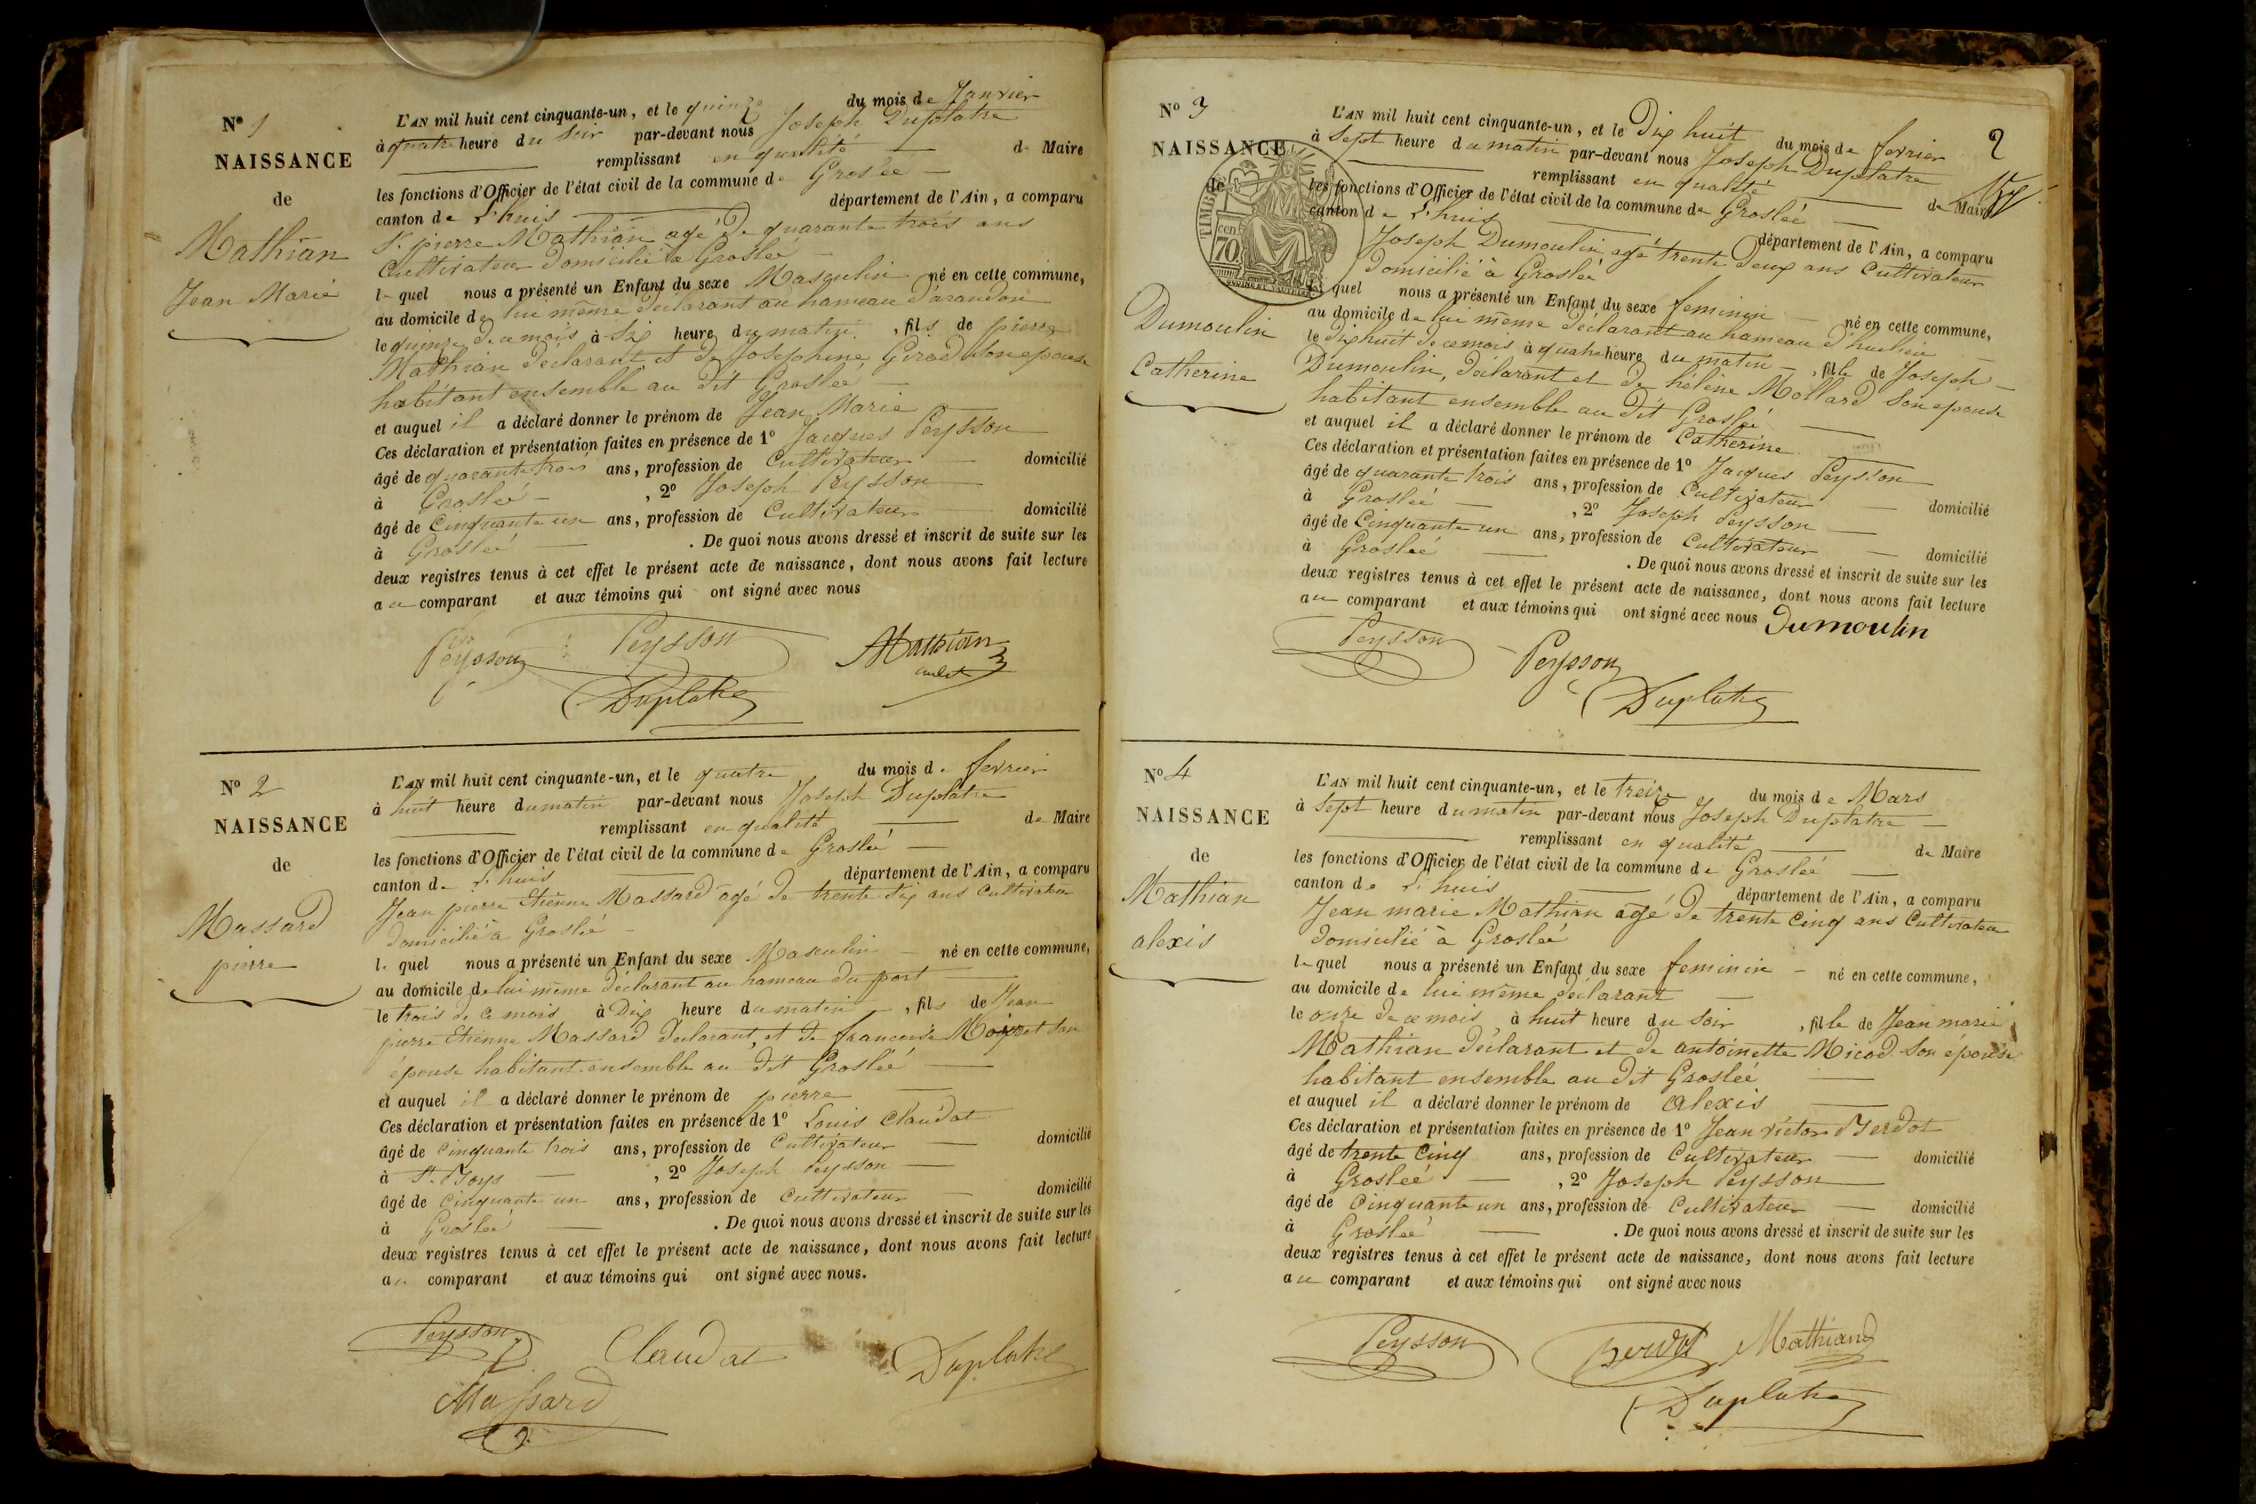 N° 1
NAISSANCE
de
Mathian
Jean Marie
L'AN mil huit cent cinquante-un, et le quinze du mois de Janvier
à quatre heure du soir par-devant nous Joseph Duplatre
remplissant en qualité de Maire
les fonctions d'Officier de l'état civil de la commune de Groslée
canton de L'huis département de l'Ain, a comparu
Sr pierre Mathian agé de quarante trois ans
Cultivateur domicilié à Groslée
lequel nous a présenté un Enfant du sexe Masculin né en cette commune,
au domicile de lui même déclarant au hameau d'arandon
le quinze de ce mois à Six heure du matin, fils de pierre
Mathian déclarant et de Josephine Girod son épouse
habitant ensemble au dit Groslée
et auquel il a déclaré donner le prénom de Jean Marie
Ces déclaration et présentation faites en présence de 1° Jacques Peysson
âgé de quarante trois ans, profession de Cultivateur domicilié
à Groslée, 2° Joseph Peysson
âgé de Cinquante un ans, profession de Cultivateur domicilié
à Groslée. De quoi nous avons dressé et inscrit de suite sur les
deux registres tenus à cet effet le présent acte de naissance, dont nous avons fait lecture
au comparant et aux témoins qui ont signé avec nous
Peysson Peysson Mathian
Duplatre
N° 2
NAISSANCE
de
Massard
pierre
L'AN mil huit cent cinquante-un, et le quatre du mois de fevrier
à huit heure du matin par-devant nous Joseph Duplatre
remplissant en qualité de Maire
les fonctions d'Officier de l'état civil de la commune de Groslée
canton de L'huis département de l'Ain, a comparu
Jean pierre Etienne Massard âgé de trente six ans Cultivateur
domicilié à Groslée
lequel nous a présenté un Enfant du sexe Masculin né en cette commune,
au domicile de lui même déclarant au hameau du port
le trois de ce mois à Dix heure du matin, fils de Jean
pierre Etienne Massard déclarant, et de francoise son
épouse habitant ensemble au dit Groslée
et auquel il a déclaré donner le prénom de pierre
Ces déclaration et présentation faites en présence de 1° Louis Claudat
âgé de cinquante trois ans, profession de Cultivateur domicilié
à St. Boys, 2° Joseph Peysson
âgé de cinquante un ans, profession de cultivateur domicilié
à Groslée. De quoi nous avons dressé et inscrit de suite sur les
deux registres tenus à cet effet le présent acte de naissance, dont nous avons fait lecture
au comparant et aux témoins qui ont signé avec nous.
Peysson Claudat Duplatre
Massard
2
N° 3
NAISSANCE
de
TIMBRE
cen
70
Dumoulin
Catherine
L'AN mil huit cent cinquante-un, et le Dix huit du mois de fevrier
à Sept heure du matin par-devant nous Joseph Duplatre
remplissant en qualité de Maire
les fonctions d'Officier de l'état civil de la commune de Groslée
canton de L'huis département de l'Ain, a comparu
Joseph Dumoulin agé trente deux ans Cultivateur
domicilié à Groslée
lequel nous a présenté un Enfant du sexe feminin né en cette commune,
au domicile de lui même déclarant au hameau
le dix huit de ce mois à quatre heure du matin, fille de Joseph
Dumoulin, déclarant et de hélène Mollard son épouse
habitant ensemble au dit Groslée
et auquel il a déclaré donner le prénom de Catherine
Ces déclaration et présentation faites en présence de 1° Jacques Peysson
âgé de quarante trois ans, profession de Cultivateur domicilié
à Groslée, 2° Joseph Peysson
âgé de Cinquante un ans, profession de Cultivateur domicilié
à Groslée. De quoi nous avons dressé et inscrit de suite sur les
deux registres tenus à cet effet le présent acte de naissance, dont nous avons fait lecture
au comparant et aux témoins qui ont signé avec nous Dumoulin
Peysson Peysson
Duplatre
N° 4
NAISSANCE
de
Mathian
alexis
L'AN mil huit cent cinquante-un, et le treize du mois de Mars
à Sept heure du matin par-devant nous Joseph Duplatre
remplissant en qualité de Maire
les fonctions d'Officier de l'état civil de la commune de Groslée
canton de L'huis département de l'Ain, a comparu
Jean marie Mathian agé de trente Cinq ans Cultivateur
domicilié à Groslée
lequel nous a présenté un Enfant du sexe feminin né en cette commune,
au domicile de lui même déclarant
le onze de ce mois à huit heure du soir, fille de Jean marie
Mathian déclarant et de antoinette Micod son épouse
habitant ensemble au dit Groslée
et auquel il a déclaré donner le prénom de alexis
Ces déclaration et présentation faites en présence de 1° Jean victor Berdot
âgé de trente Cinq ans, profession de Cultivateur domicilié
à Groslée, 2° Joseph Peysson
âgé de Cinquante un ans, profession de Cultivateur domicilié
à Groslée. De quoi nous avons dressé et inscrit de suite sur les
deux registres tenus à cet effet le présent acte de naissance, dont nous avons fait lecture
au comparant et aux témoins qui ont signé avec nous
Peysson Berdot Mathiand
Duplatre